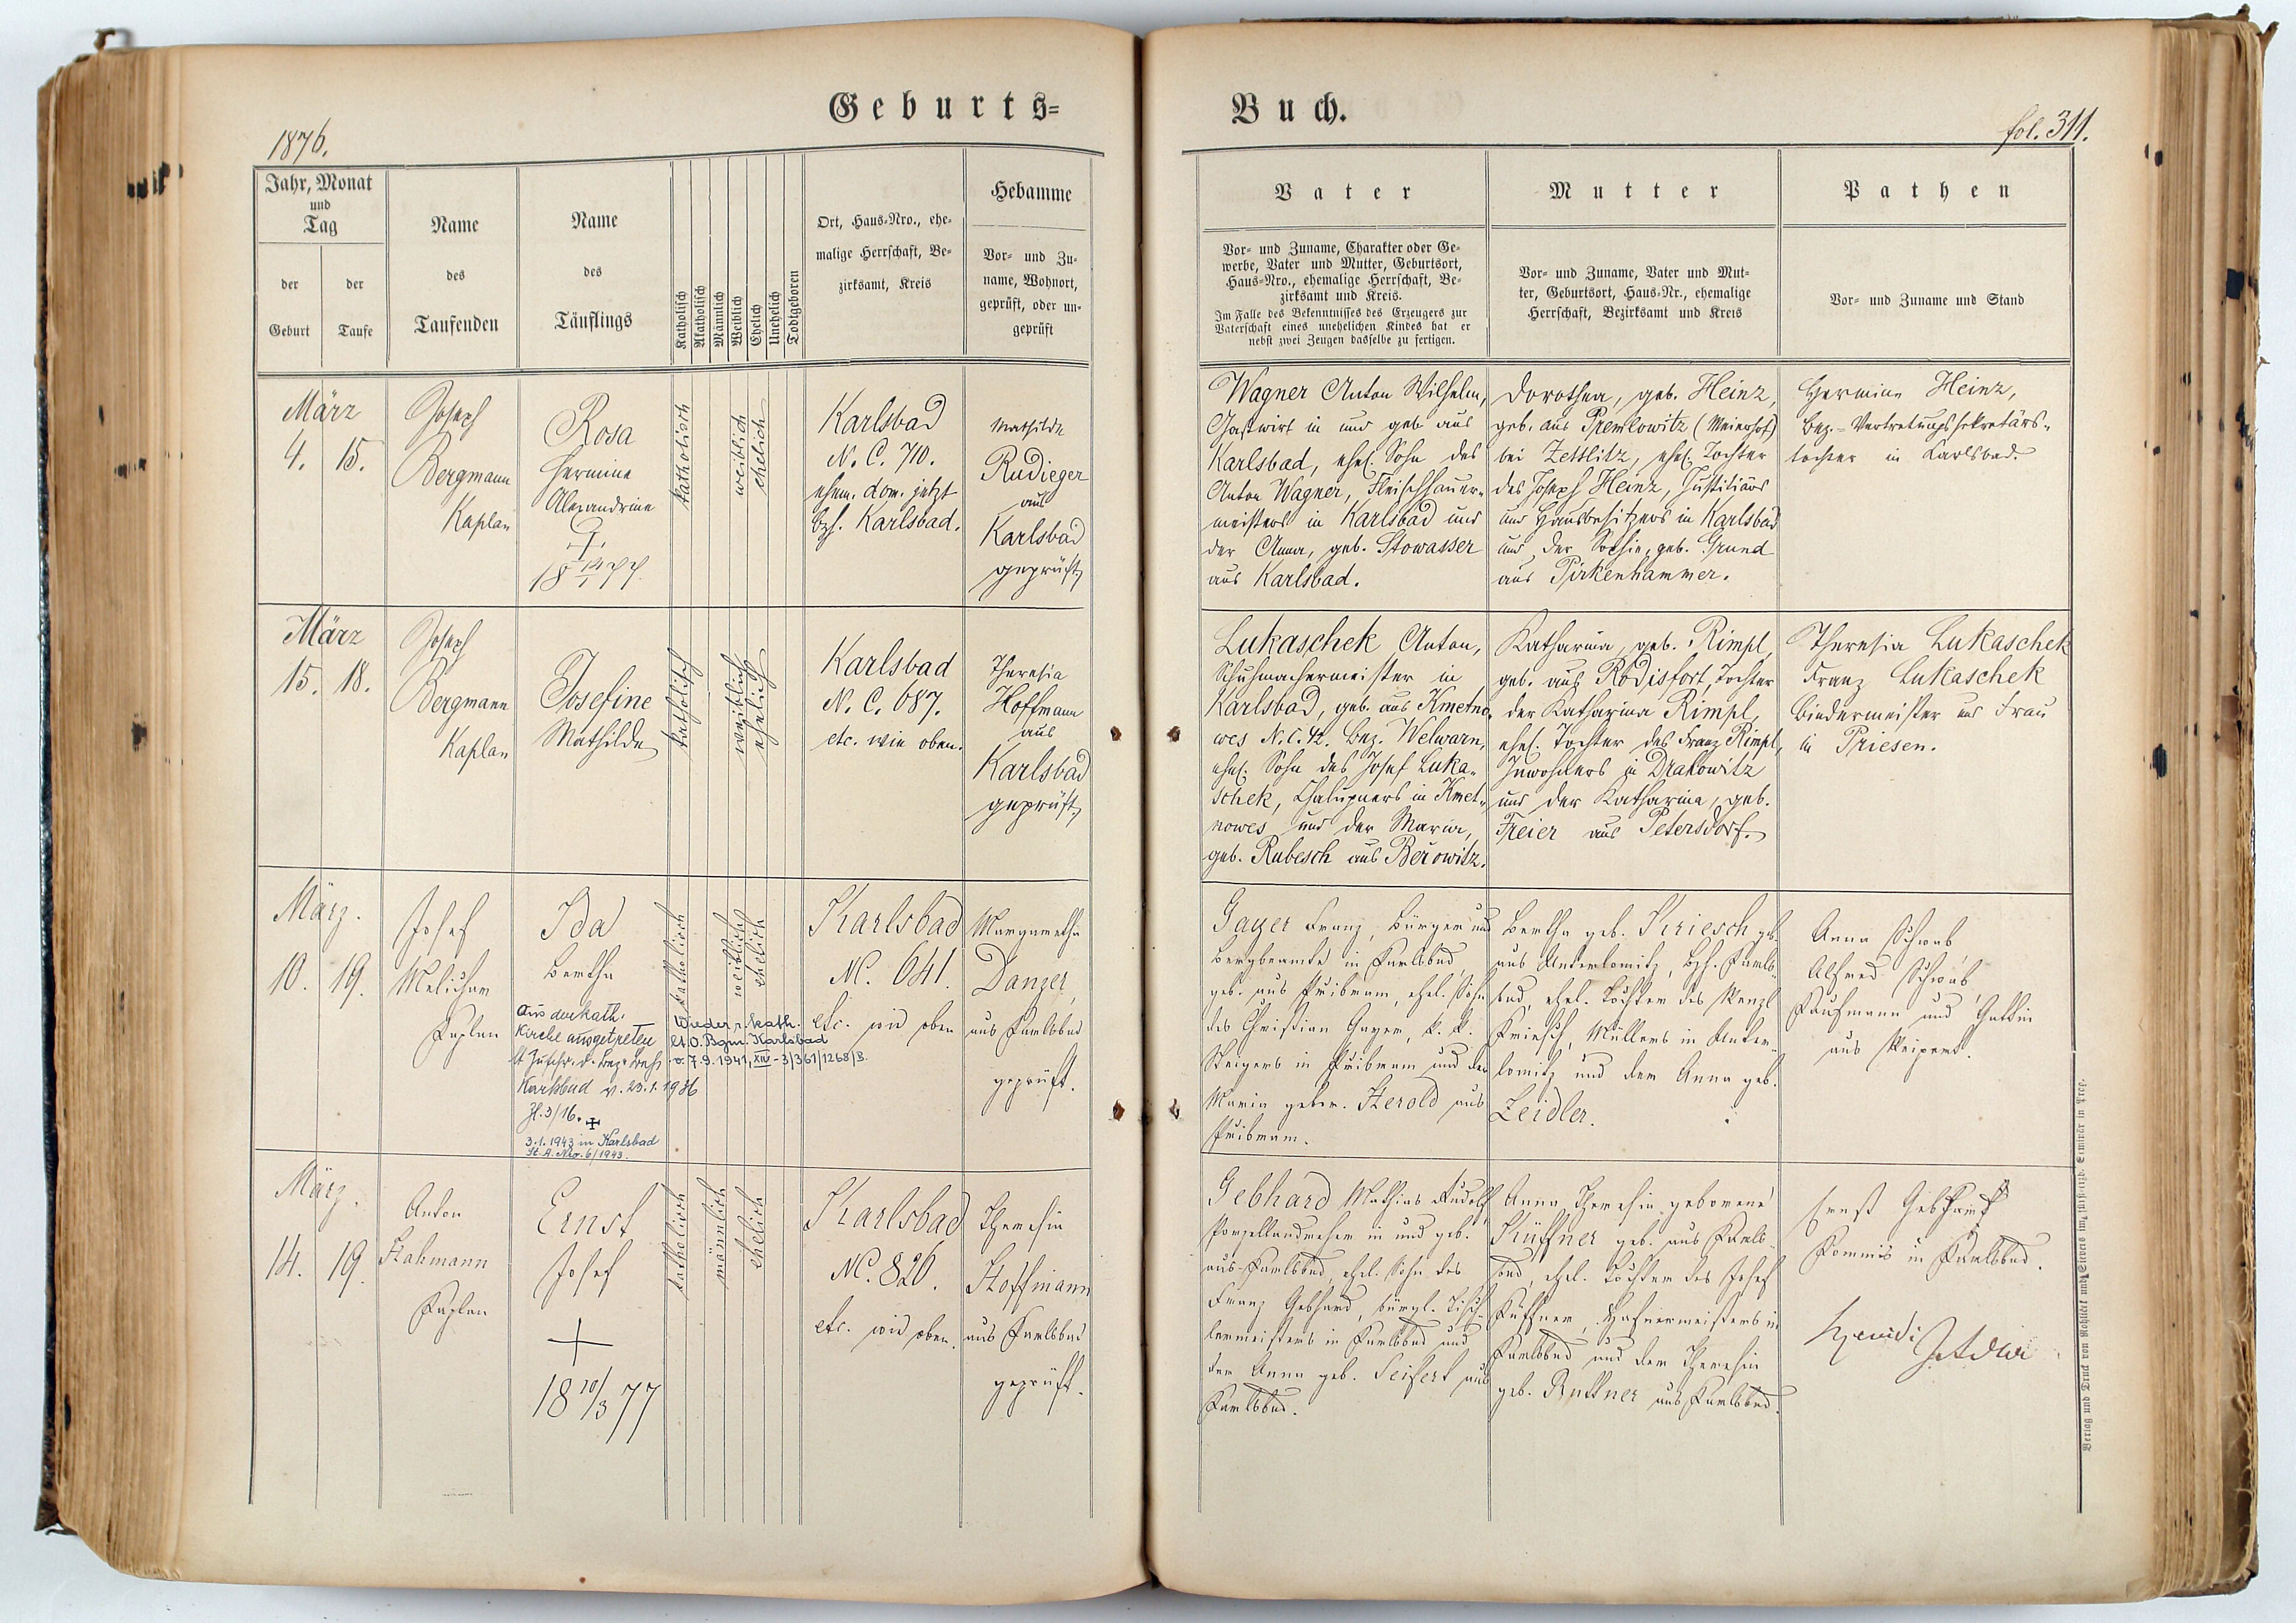 Geburts=
Buch.
1876.
fol. 311.
Jahr, Monat
und
Tag
der
Geburt
der
Taufe
Name
des
Taufenden
Name
des
Täuflings
Katholisch
Akatholisch
Männlich
Weiblich
Ehelich
Unehelich
Todtgeboren
Ort, Haus=Nro., ehe=
malige Herrschaft, Be=
zirksamt, Kreis
Hebamme
Vor= und Zu=
name, Wohnort,
geprüft, oder un=
geprüft
Vater
Vor= und Zuname, Charakter oder Ge=
werbe, Vater und Mutter, Geburtsort,
Haus=Nro., ehemalige Herrschaft, Be=
zirksamt und Kreis.
Im Falle des Bekenntnisses des Erzeugers zur
Vaterschaft eines unehelichen Kindes hat er
nebst zwei Zeugen dasselbe zu fertigen.
Mutter
Vor= und Zuname, Vater und Mut=
ter, Geburtsort, Haus=Nr., ehemalige
Herrschaft, Bezirksamt und Kreis
Pathen
Vor= und Zuname und Stand
März
4. 15.
Joseph
Bergmann
Kaplan
Rosa
Hermine
Alexandrine
katholisch
weiblich
ehelich
Karlsbad
N. C. 710.
ehem. dom. jetzt
bzh. Karlsbad.
Mathilde
Rudieger
aus
Karlsbad
geprüft
Wagner Anton Wilhelm,
Gastwirt in und geb. aus
Karlsbad, ehel. Sohn des
Anton Wagner, Fleischhauer=
meisters in Karlsbad und
der Anna, geb. Stowasser
aus Karlsbad.
Dorothea, geb. Heinz,
geb. aus Premlowitz (Meierhof)
bei Zettlitz, ehel. Tochter
des Joseph Heinz, Justitiärs
und Hausbesitzers in Karlsbad
und der Sophie, geb. Grund
aus Pirkenhammer.
Hermine Heinz,
Bez.=Vertretungssekretärs=
tochter in Karlsbad.
März
15. 18.
Joseph
Bergmann
Kaplan
Josefine
Mathilde
katholisch
weiblich
ehelich
Karlsbad
N. C. 687.
etc. wie oben.
Theresia
Hoffmann
aus
Karlsbad
geprüft
Lukaschek Anton,
Schuhmachermeister in
Karlsbad, geb. aus Kmetno=
wes N.C. 42. Bez. Welwarn,
ehel. Sohn des Josef Luka=
schek, Chalupners in Kmet=
nowes und der Maria,
geb. Rubesch aus Berowitz.
Katharina, geb. Rimpl,
geb. aus Rodisfort, Tochter
der Katharina Rimpl,
ehel. Tochter des Franz Rimpl,
Inwohners in Drahowitz
und der Katharina, geb.
Freier aus Petersdorf.
Theresia Lukaschek
Franz Lukaschek
Bindermeister und Frau
in Priesen.
März.
10. 19.
Josef
Melichar
Kaplan
Ida
Bertha
Aus der kath.
Kirche ausgetreten
lt Zuschr. d. Bez. Beh.
Karlsbad v. 23.1.1936
Zl. 3/16.
3.1.1943 in Karlsbad
St. A. Nro. 6/1943.
katholisch
weiblich
ehelich
Wieder r. kath.
lt. O. Bgm. Karlsbad
v. 7.9.1941, XIV-3/361/1268/B.
Karlsbad
NC. 641.
etc. wie oben
Margaretha
Danzer,
aus Karlsbad
geprüft.
Gayer Franz, Bürger und
Bergbeamte in Karlsbad,
geb. aus Pribram, ehel. Sohn
des Christian Gayer, k. k.
Steigers in Pribram und der
Maria gebor. Herold aus
Pribram.
Bertha geb. Kriesch geb.
aus Unterlomitz, Bzh. Karls=
bad, ehel. Tochter des Wenzl
Kriesch, Müllers in Unter=
lomitz und der Anna geb.
Zeidler.
Anna Schwab,
Alfred Schwab,
Kaufmann und Gattin
aus Weipert.
März.
14. 19.
Anton
Hahmann
Kaplan
Ernst
Josef
18 10/3 77
katholisch
männlich
ehelich
Karlsbad
NC. 826.
etc. wie oben.
Theresia
Hoffmann
aus Karlsbad
geprüft.
Gebhard Mathias Rudolf,
Porzellandreher in und geb.
aus Karlsbad, ehel. Sohn des
Franz Gebhard, bürgl. Tisch=
lermeisters in Karlsbad und
der Anna geb. Seifert aus
Karlsbad.
Anna Theresia geborene
Küffner geb. aus Karls=
bad, ehel. Tochter des Josef
Küffner, Hafnermeisters in
Karlsbad und der Theresia
geb. Buttner aus Karlsbad.
Ernst Gebhard
Kommis in Karlsbad.
Verlag und Druck von